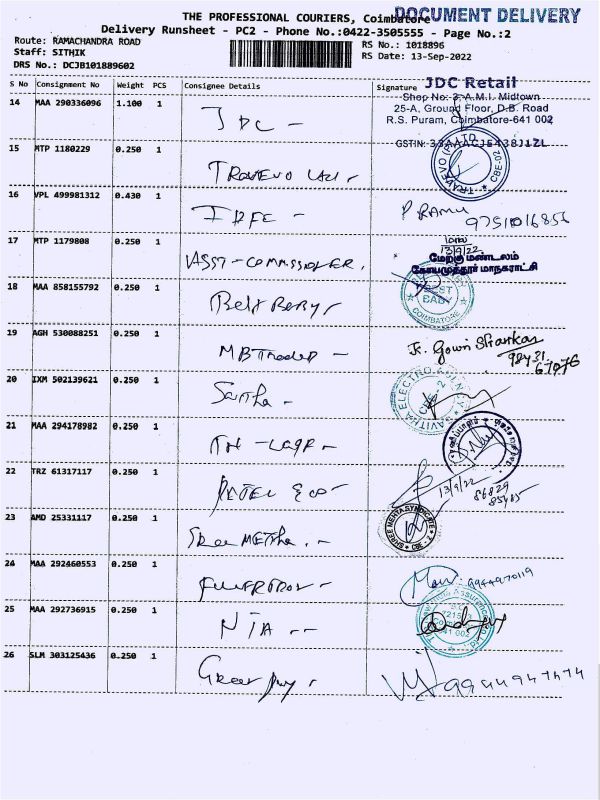 THE PROFESSIONAL COURIERS, Coimbatore
DOCUMENT DELIVERY
Delivery Runsheet - PC2 - Phone No.:0422-3505555 - Page No.:2
Route: RAMACHANDRA ROAD
RS No.: 1018896
Staff: SITHIK
RS Date: 13-Sep-2022
DRS No.: DCJB101889602
S No Consignment No Weight PCS Consignee Details Signature
JDC Retail
Shop No: 3, A.M.I. Midtown
25-A, Ground Floor, D.B. Road
R.S. Puram, Coimbatore-641 002
GSTIN: 33AAACJ5438J1ZL
14 MAA 290336096 1.100 1 JDC -
15 MTP 1180229 0.250 1
CBE-02
16 VPL 499981312 0.430 1
P RAMU
9751016856
17 MTP 1179808 0.250 1 ASST - COMMISSIONER.
13/9/22
மேற்கு மண்டலம்
கோயமுத்தூர் மாநகராட்சி
18 MAA 858155792 0.250 1
COIMBATORE
19 AGH 530088251 0.250 1 MB Traders -
Gowri Shankar
20 IXM 502139621 0.250 1
CBE-2
21 MAA 294178982 0.250 1
22 TRZ 61317117 0.250 1 PATEL
13/9/22
23 AMD 25331117 0.250 1 Shree METHA. -
SHREE MEHTA SYNDICATE
CBE - 2
24 MAA 292460553 0.250 1
9944970119
25 MAA 292736915 0.250 1 NIA --
26 SLM 303125436 0.250 1
9944947474